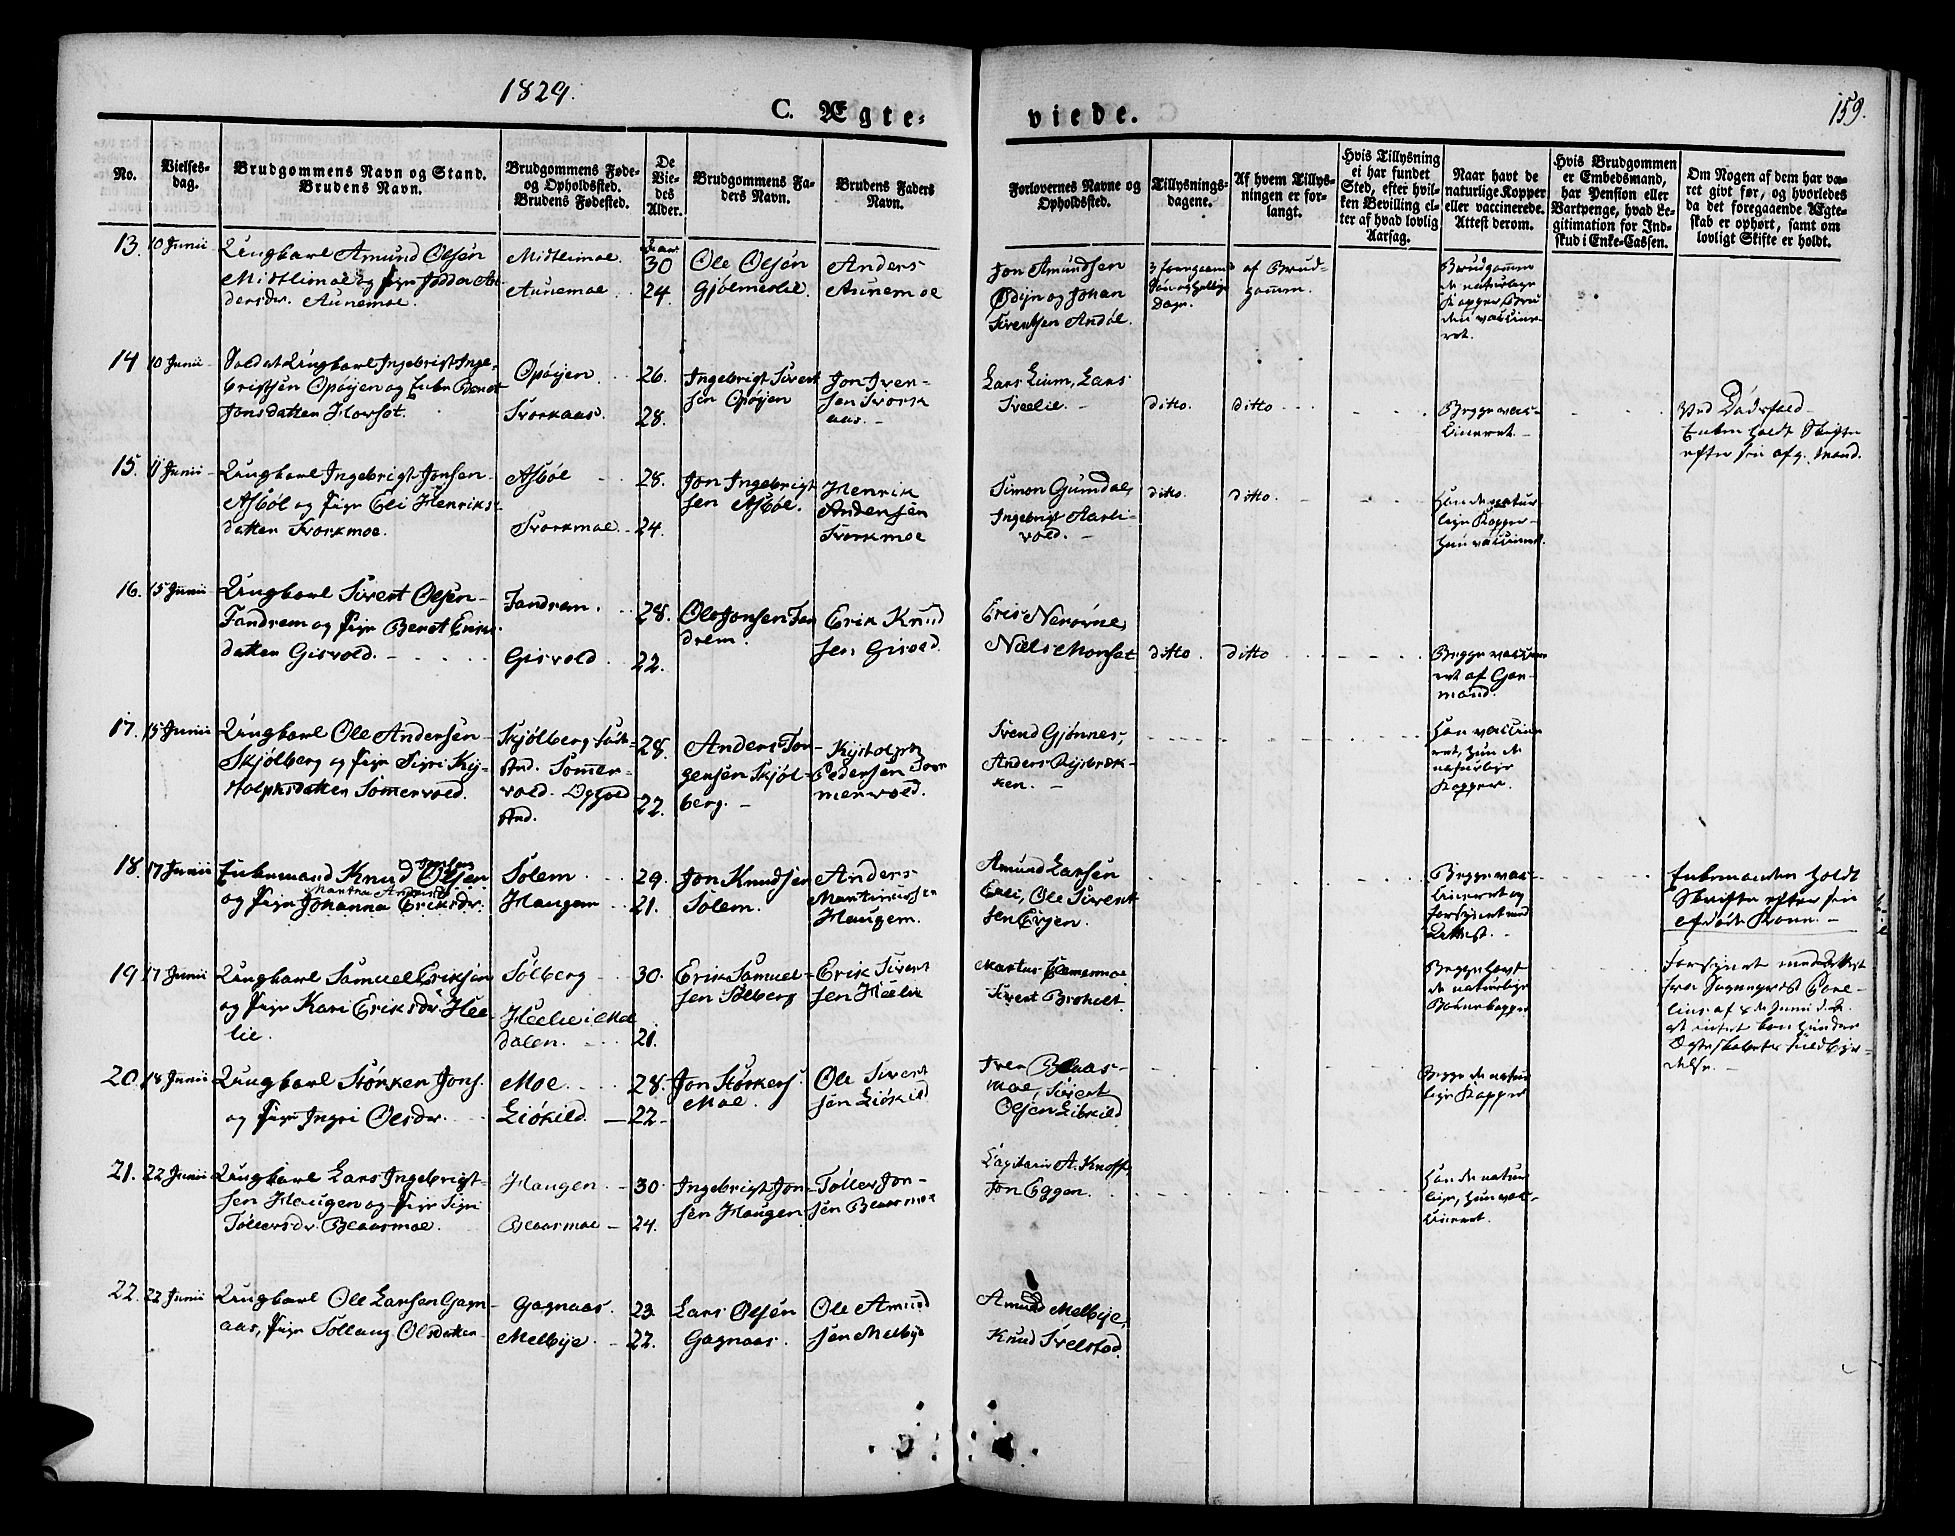 1829.
159.
C. Ægte-
viede.
No.
Vielses-
dag.
Brudgommens Navn og Stand.
Brudens Navn.
Brudgommens Føde-
og Opholdssted.
Brudens Fødested.
De
Vie-
des
Alder.
Brudgommens Fa-
ders Navn.
Brudens Faders
Navn.
Forlovernes Navne og
Opholdssted.
Tillysnings-
dagene.
Af hvem Tillys-
ningen er for-
langt.
Hvis Tillysning
ei har fundet
Sted, efter hvil-
ken Bevilling el-
ler af hvad lovlig
Aarsag.
Naar havt de
naturlige Kopper
eller vaccinerede.
Attest derom.
Hvis Brudgommen
er Embedsmand,
har Pension eller
Vartpenge, hvad Le-
gitimation for Ind-
skud i Enke-Cassen.
Om Nogen af dem har væ-
ret givt før, og hvorledes
da det foregaaende Ægte-
skab er ophørt, samt om
lovligt Skifte er holdt.
13. 10 Junii
Ungkarl Amund Olsen
Midtlimoe og Pige Jødda An-
dersdr. Aunemoe.
Midtlimoe
Aunemoe
Aar
30
24.
Ole Olsen
Gjølmeslie.
Anders
Aunemoe
Jon Amundsen
Ødijn og Johan
Sivertsen Andøl.
3 foregaaende
Søn og Hellige
Dage.
af Brud-
gomm.
Brudgomm
de naturlige
Kopper, Bru
den vaccine-
ret.
14 10 Junii
Soldat Ungkarl Ingebrigt Inge-
brigtsen Opøijen og Enke Beret
Jonsdatter Horset.
Opøijen
Svorkaas.
26.
28.
Ingebrigt Sivert
sen Opøijen
Jon Iver-
sen Svork
aas.
Lars Lium, Lars
Sveelie.
ditto.
ditto
Begge vac-
cineret.
Ved Dødsfald
Enken holdt Skifte
efter sin afg. Mand.
15. 11 Junii
Ungkarl Ingebrigt Jonsen
Asbøl og Pige Eli Henriks-
datter Svorkmoe.
Asbøl
Svorkmoe
28.
24.
Jon Ingebrigt
sen Asbøl.
Henrik
Andersen
Svorkmoe
Simon Gumdal,
Ingebrigt Aarli-
vold.
ditto.
ditto
Han de natur
lige Kopper
Hun vaccineret.
16. 15 Junii
Ungkarl Sivert Olsen
Fandrem og Pige Beret Eriks-
datter Gisvold.
Fandrem.
Gisvold
28.
22.
Ole Jonsen Fan
drem.
Erik Knud
sen Gisvold.
Eric Nerøvne,
Niels Monset
ditto.
ditto
Begge vaccine
ret af Gar-
mand.
17. 15 Junii
Ungkarl Ole Andersen
Skjølberg og Pige Sigri Ky-
stolphsdatter Sommervold.
Skjølberg
Sommer-
vold.
28.
22.
Anders Jør
gensen Skjøl-
berg.
Kystolph
Pedersen Som
mervold.
Svend Gjønnes,
Anders Rijsbrek-
ken.
Han vaccine
ret, Hun de
naturlige
Kopper.
18. 17 Junii
Enkemand Knud Olsen
Jonsen
og Pige Johanna Eriksdr.
Martha Andersdr.
Solem
Haugen
29.
21.
Jon Knudsen
Solem.
Anders
Martinussen
Haugem.
Amund Larsen
Eeli, Ole Sivert
sen Evjen.
Begge vac-
cineret og
forsijnet med
Attest.
Enkemanden holdt
Skifte efter sin
afdøde Kone.
19 17 Junii
Ungkarl Samuel Eriksen
og Pige Kari Eriksdr. Hee-
lie.
Sølberg
Heelie i Mel
dalen.
30.
21.
Erik Samuel-
sen Sølberg
Erik Sivert
sen Heelie
Sivert Broholt
Begge havt
de naturlige
Børnekopper
forsijnet med Attest
fra Sognepræst
af Junii d. A.
at intet kan hindre
Ægteskabets Fuldbyr-
delse.
20. 18 Junii
Ungkarl Størker Jons.
og Pige Ingri Olsdr.
Moe.
Liøkild.
28.
22
Jon Størkers.
Moe.
Ole Sivert
sen Liøkild
Iver Blaas-
moe, Sivert
Olsen Liøkild
Begge de natur
lige Kopper
21. 22 Junii
Ungkarl Lars Ingebrigt-
sen Haugen og Pige Sigri
Tøllersdr. Blaasmoe.
Haugen
Blaasmoe
30
24.
Ingebrigt Jon-
sen Haugen
Tøller Jon-
sen Blaasmoe
Capitain A. Knoff,
Jon Eggen.
Han de natur
lige, Hun vac-
cineret.
22. 22 Junii
Ungkarl Ole Larsen Gagn-
aas, Pige Sollaug Olsdatter
Gagnaas.
Melbije.
23
22.
Lars Olsen
Gagnaas.
Ole Amund
sen Melbije
Amund Melbije,
Knud Svelstad.